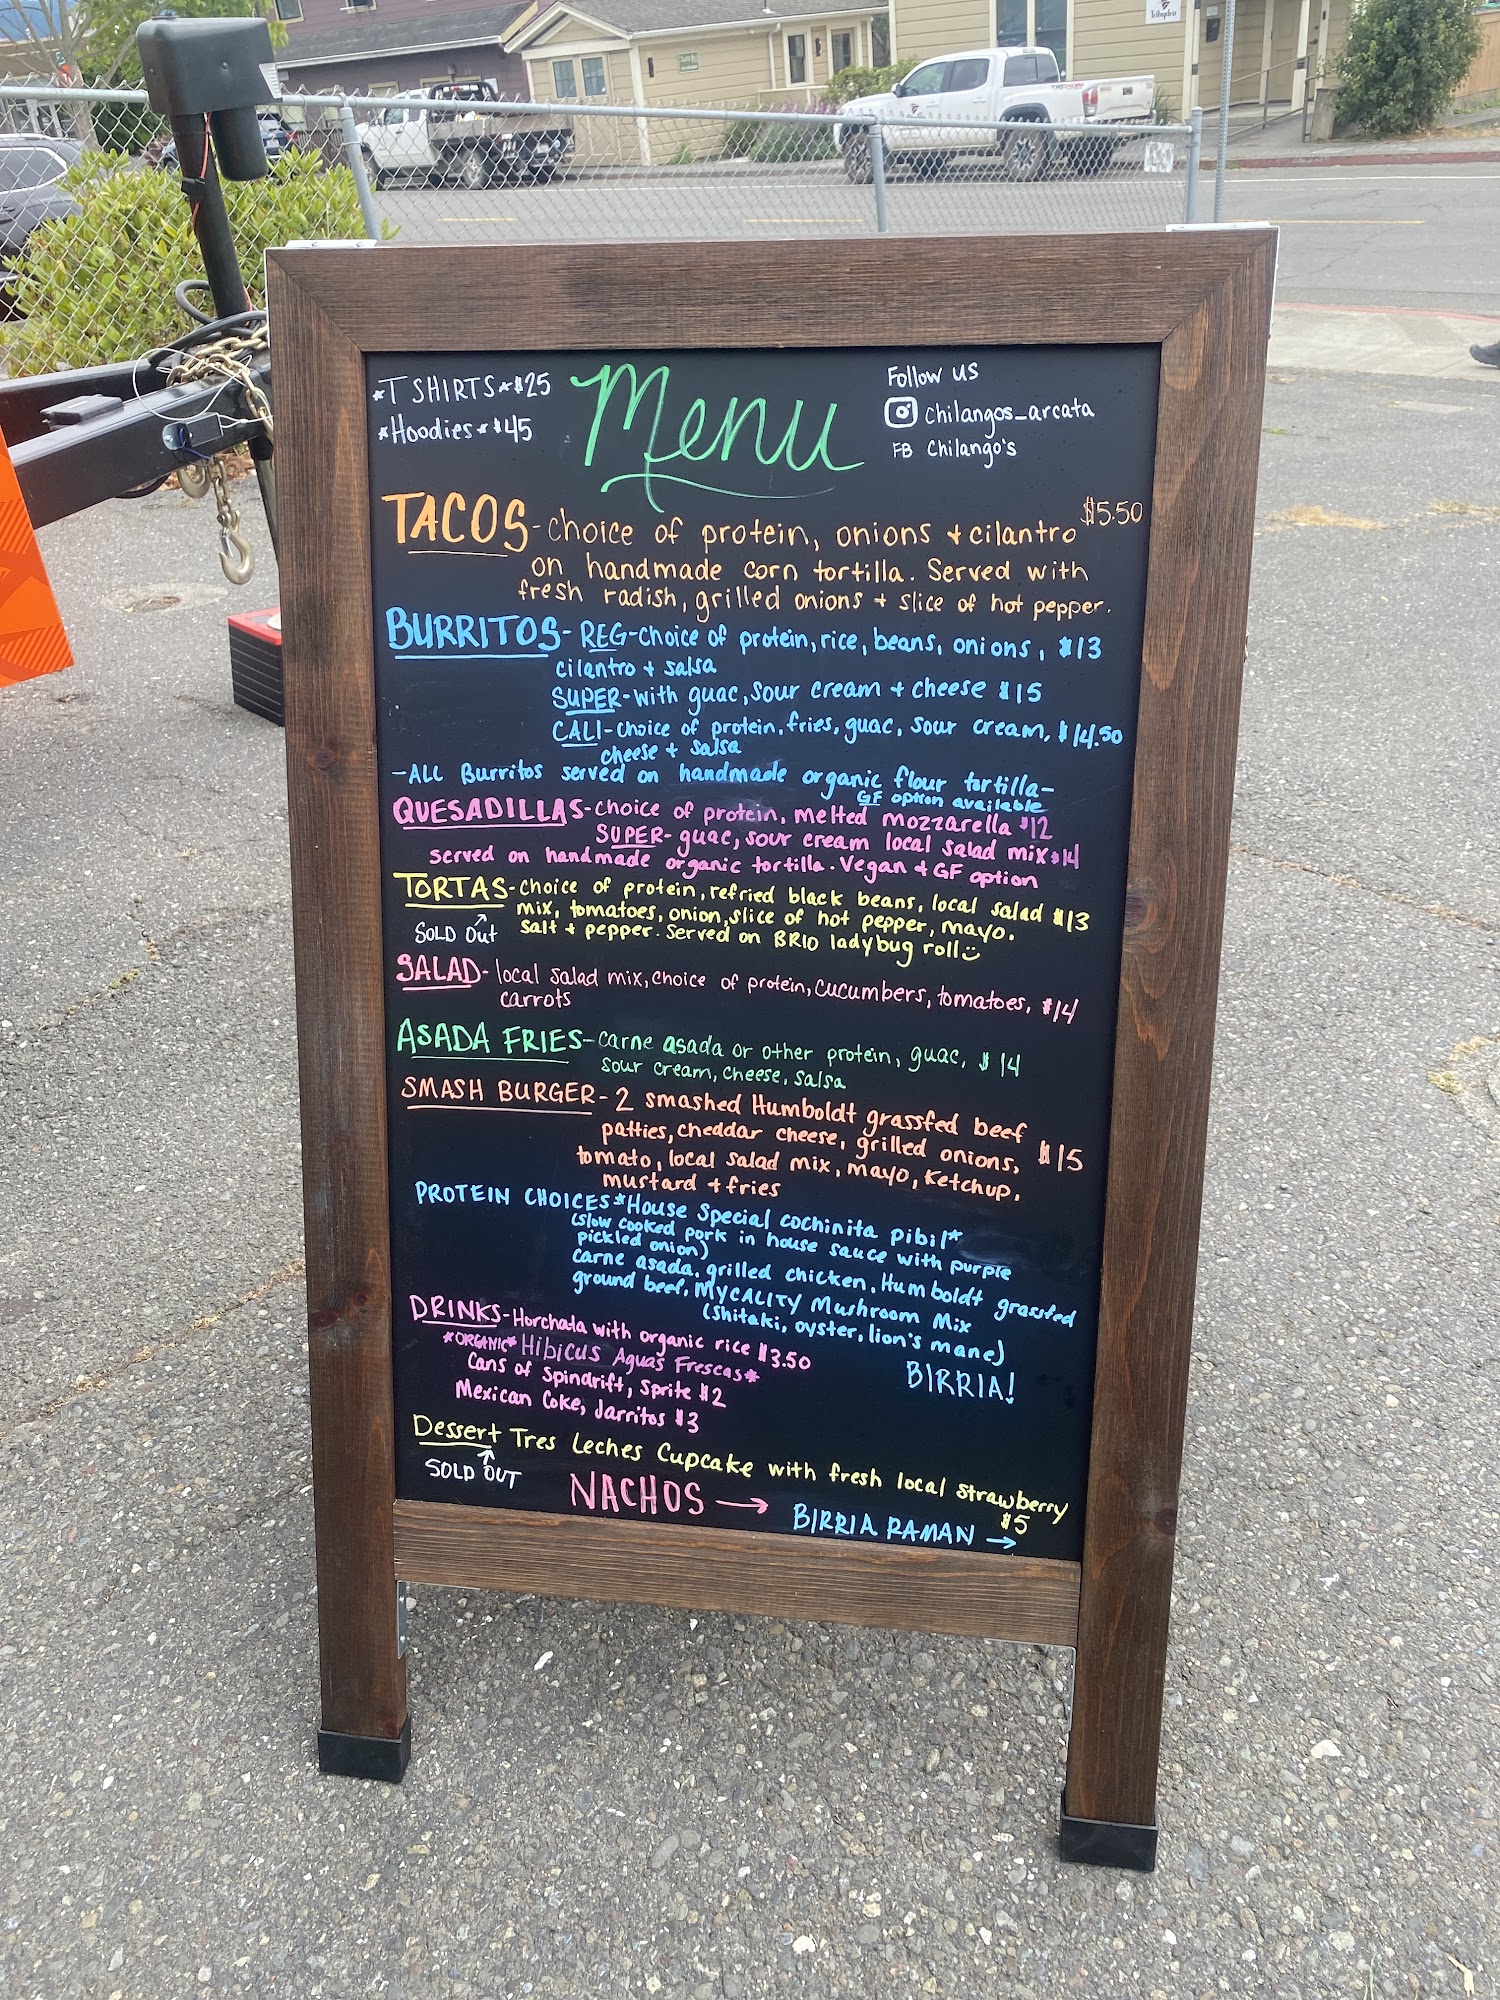 *T SHIRTS*$25
*Hoodies*$45
Menu
Follow us
chilangos_arcata
FB Chilango's
TACOS-choice of protein, onions + cilantro $5.50
on handmade corn tortilla. Served with
fresh radish, grilled onions + slice of hot pepper.
BURRITOS- REG-choice of protein, rice, beans, onions, $13
cilantro + salsa
SUPER-with guac, sour cream + cheese $15
CALI-choice of protein, fries, guac, sour cream, $14.50
cheese + salsa
-ALL Burritos served on handmade organic flour tortilla-
GF option available
QUESADILLAS-choice of protein, melted mozzarella $12
SUPER- guac, sour cream local salad mix $14
served on handmade organic tortilla. Vegan + GF option
TORTAS-choice of protein, refried black beans, local salad $13
mix, tomatoes, onion, slice of hot pepper, mayo.
SOLD Out salt + pepper. Served on BRIO ladybug roll
SALAD- local salad mix, choice of protein, cucumbers, tomatoes, $14
carrots
ASADA FRIES-carne asada or other protein, guac, $14
sour cream, cheese, salsa
SMASH BURGER- 2 smashed Humboldt grassfed beef
patties, cheddar cheese, grilled onions, $15
tomato, local salad mix, mayo, ketchup,
mustard + fries
PROTEIN CHOICES*House Special cochinita pibil*
(slow cooked pork in house sauce with purple
pickled onion)
carne asada, grilled chicken, Humboldt grassfed
ground beef, MYCALITY Mushroom Mix
(shitaki, oyster, lion's mane)
BIRRIA!
DRINKS-Horchata with organic rice $3.50
*ORGANIC* Hibicus Aguas Frescas*
Cans of Spindrift, Sprite $2
Mexican Coke, Jarritos $3
Dessert Tres Leches Cupcake with fresh local strawberry
$5
SOLD OUT
NACHOS →
BIRRIA RAMAN →